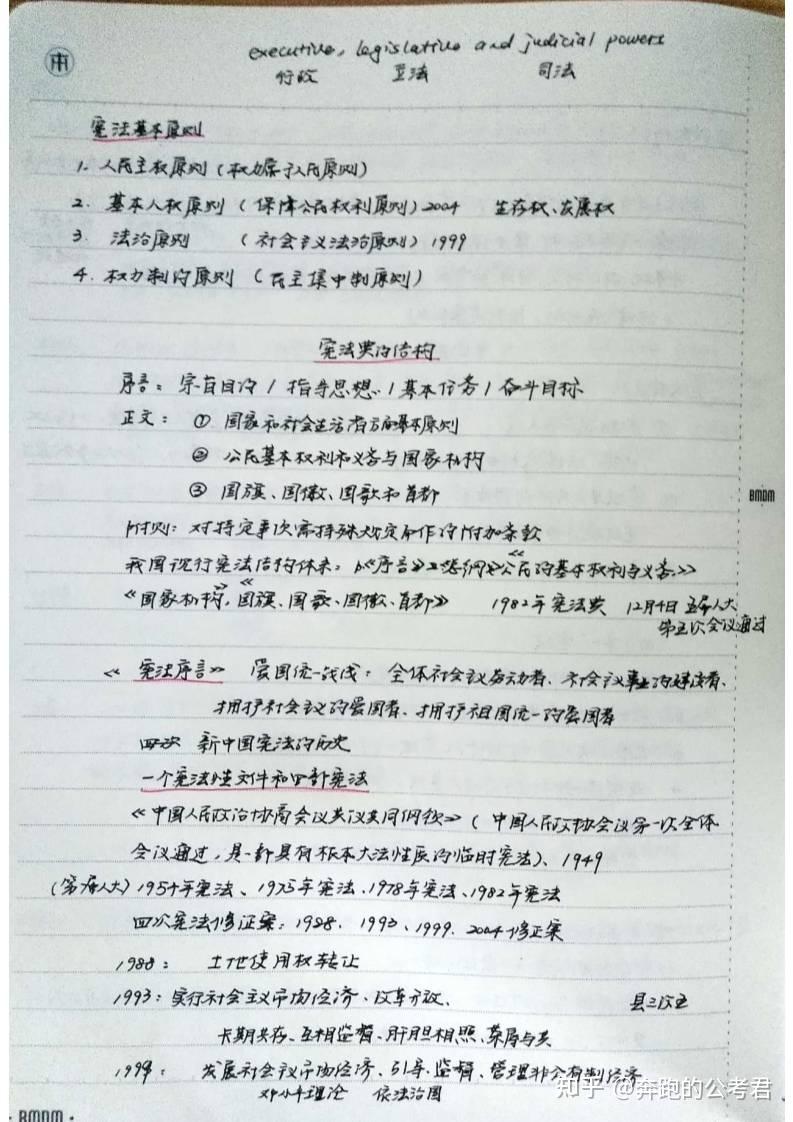 executive, legislative and judicial powers
行政 立法 司法
宪法基本原则
1. 人民主权原则(权力属于人民原则)
2. 基本人权原则(保障公民权利原则)2004 生存权、发展权
3. 法治原则 (社会主义法治原则)1999
4. 权力制约原则 (民主集中制原则)
宪法典的结构
序言: 宗旨目的 / 指导思想 / 基本任务 / 奋斗目标
正文: ① 国家和社会生活诸方面基本原则
② 公民基本权利和义务与国家机构
③ 国旗、国徽、国歌和首都
附则: 对特定事项需特殊规定而作的附加条款
我国现行宪法结构体系: 《序言》《总纲》《公民的基本权利与义务》
《国家机构》《国旗、国歌、国徽、首都》 1982年宪法典 12月4日 五届人大
第五次会议通过
《宪法序言》 爱国统一战线: 全体社会主义劳动者、社会主义事业的建设者、
拥护社会主义的爱国者、拥护祖国统一的爱国者
四次 新中国宪法的历史
一个宪法性文件和四部宪法
《中国人民政治协商会议共同纲领》(中国人民政协会议第一次全体
会议通过,是一部具有根本大法性质的临时宪法)、1949
(第一届人大)1954年宪法、1975年宪法、1978年宪法、1982年宪法
四次宪法修正案: 1988、1993、1999、2004修正案
1988: 土地使用权转让
1993: 实行社会主义市场经济、改革开放、 县三改五
长期共存、互相监督、肝胆相照、荣辱与共
1999: 发展社会主义市场经济、引导、监督、管理非公有制经济
邓小平理论 依法治国
BMDM
BMDM
知乎 @奔跑的公考君